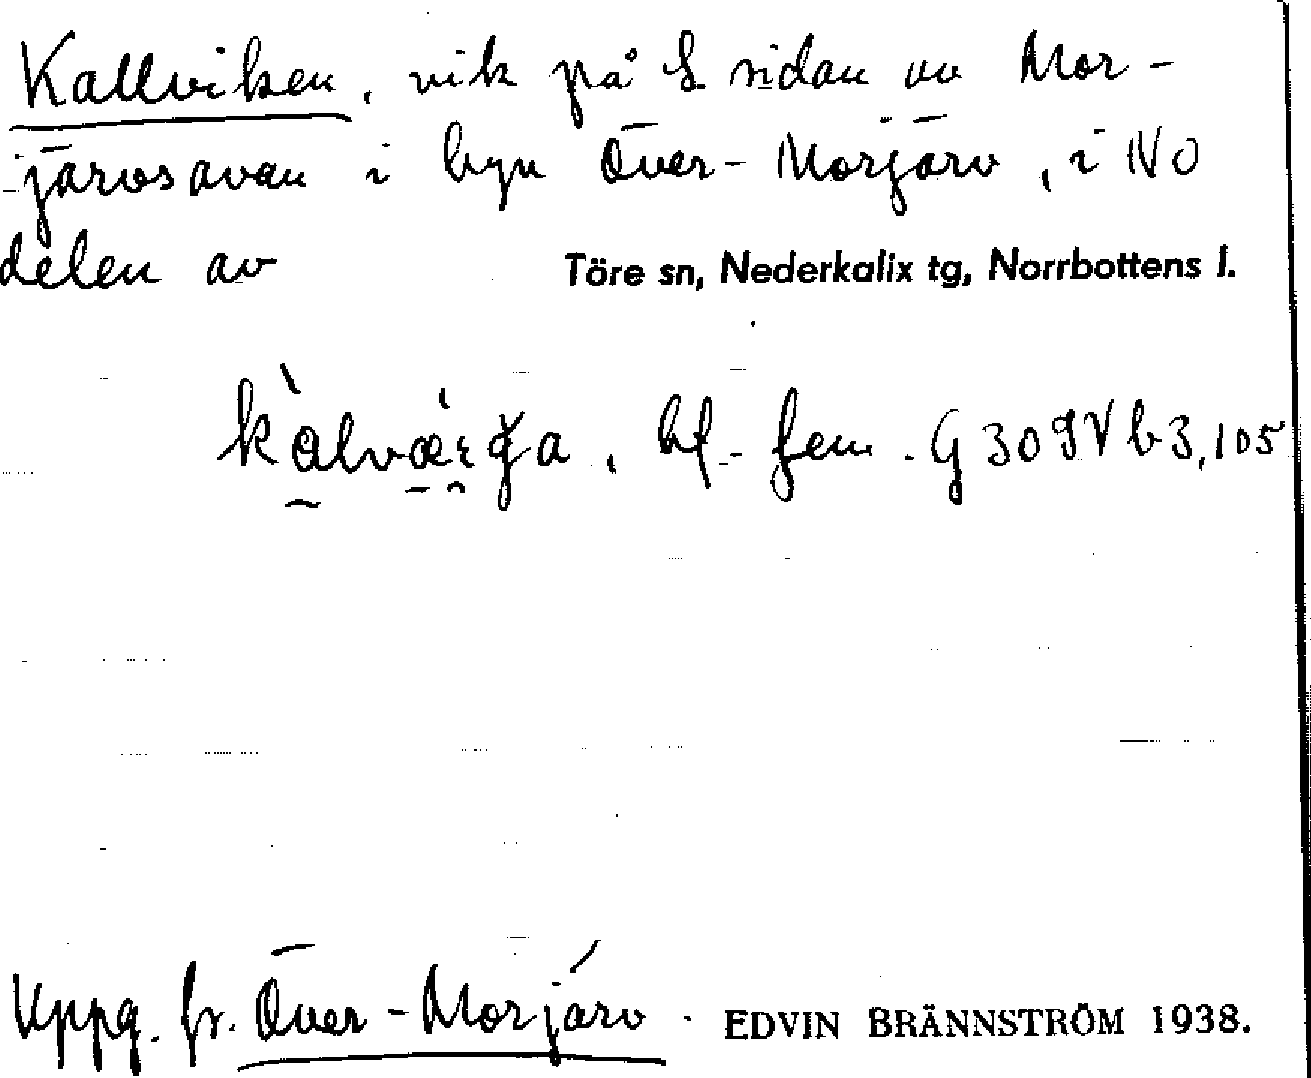 Kallviken, vik på S sidan av Mor-
järvsavan i byn Över-Morjärv, i NO
delen av Töre sn, Nederkalix tg, Norrbottens l.
bf. fem. G 309V b3, 105
Uppg. fr. Över-Morjärv. EDVIN BRÄNNSTRÖM 1938.